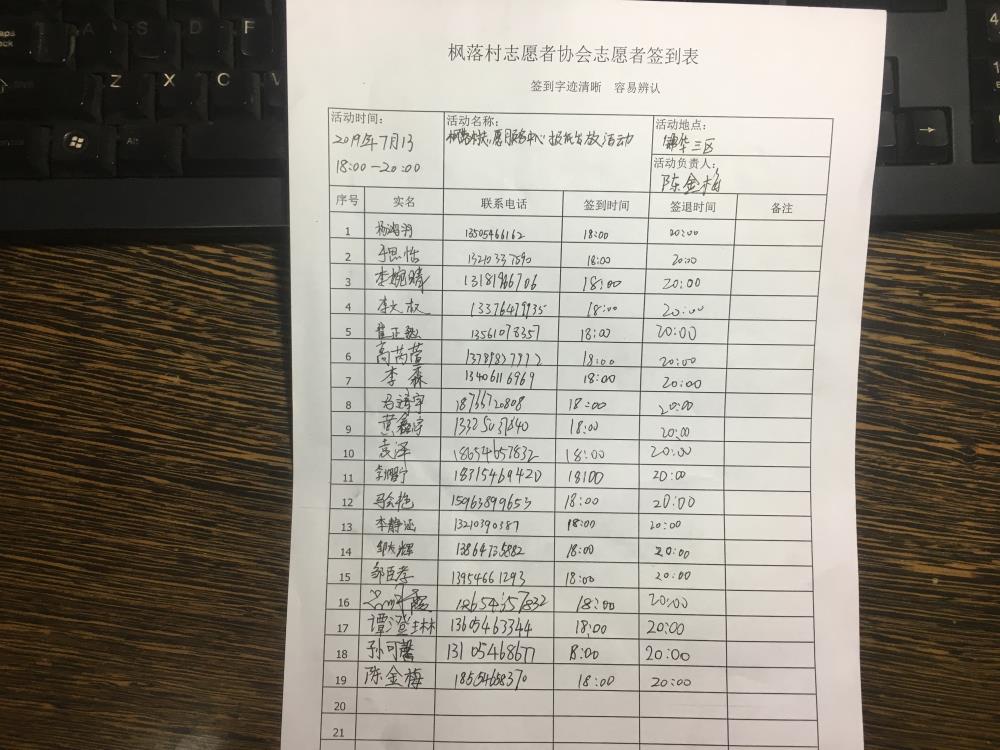 A S D F
Z X C V
Alt
枫落村志愿者协会志愿者签到表
签到字迹清晰 容易辨认
活动时间: 活动名称: 活动地点:
2019年7月13 枫落村志愿服务中心 报纸发放活动 锦华三区
18:00-20:00 活动负责人:
陈金梅
序号 实名 联系电话 签到时间 签退时间 备注
1 13505466162 18:00 20:00
2 于思怡 13210337890 18:00 20:00
3 李婉晴 13181966706 18:00 20:00
4 李大权 13376479935 18:00 20:00
5 崔正毅 13561078357 18:00 20:00
6 高芮萱 13789827972 18:00 20:00
7 李森 13406116969 18:00 20:00
8 18:00 20:00
9 18:00 20:00
10 袁泽 18654657832 18:00 20:00
11 18315469420 18:00 20:00
12 15963899653 18:00 20:00
13 李静涵 13210390387 18:00 20:00
14 13864735882 18:00 20:00
15 邹臣孝 13954661293 18:00 20:00
16 18654657832 18:00 20:00
17 谭澄琳 13605463344 18:00 20:00
18 孙可馨 13105468677 8:00 20:00
19 陈金梅 18554658370 18:00 20:00
20
21